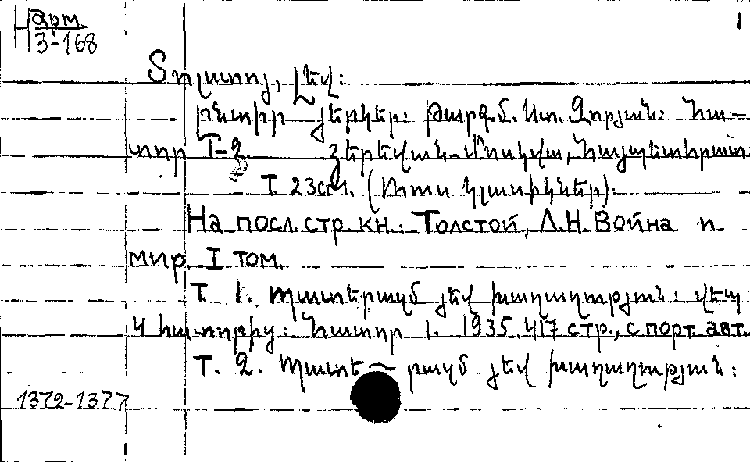 Н арм 1
3-168
Տոլստոյ, Լեվ։
Ընտիր յերկեր։ Թարգմ. Ստ. Զորյան։ Հա-
տոր I-2 Յերեվան-Մոսկվա, Հայպետհրատ
Т. 23см. (Ռուս կլասիկներ)։
На посл. стр. кн.: Толстой, Л.Н. Война и
мир. I том.
Т. 1. Պատերազմ յեվ խաղաղություն։ Վեպ
4 հատորից։ Հատոր 1. 1935, 417 стр., с порт. авт.
Т. 2. Պատե — րազմ յեվ խաղաղություն։
1372-1377